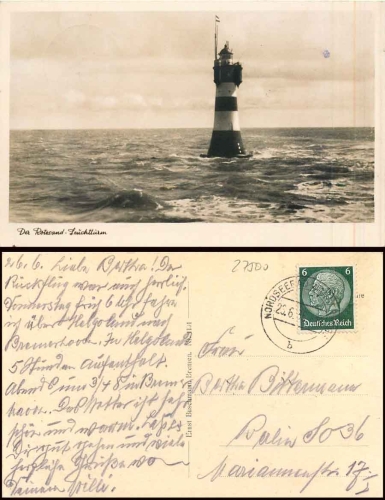 Der Rotesand-Leuchtturm
26.6. Liebe Bertha! Der
Rückflug war noch herrlich.
Donnerstag früh 6 Uhr fahre
ich über Helgoland nach
Bremerhaven. In Helgoland
5 Stunden Aufenthalt.
Abend um 3/4 8 in Bremer
haven. Das Wetter ist ja
schön und warm. Laß
Dir gut gehen und viele
herzliche Grüße von
Deinem Willi.
Ernst Bachmann, Bremen.
27500
NORDSEE
6 6
Deutsches Reich
b
Frau
Bertha Bittermann
Berlin SO 36
Mariannenstr. 17
I